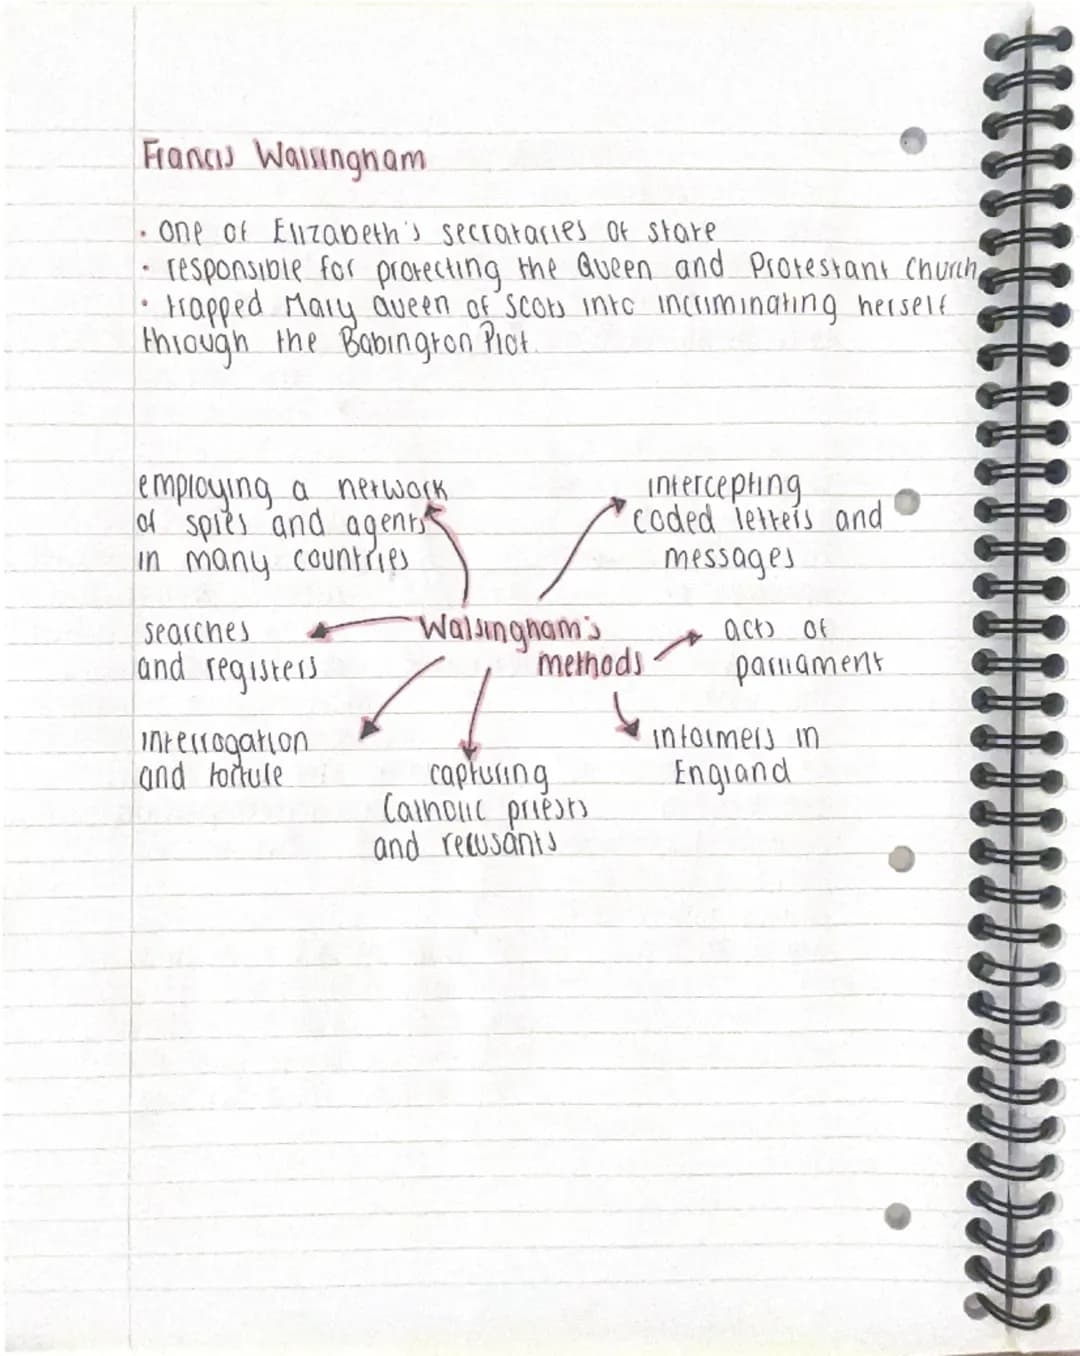 Francis Walsingham
• one of Elizabeth's secrataries of state
• responsible for protecting the Queen and Protestant Church
• trapped Mary Queen of Scots into incriminating herself
through the Babington Plot.
employing a network
of spies and agents
in many countries
intercepting
coded letters and
messages
searches
and registers
Walsingham's
methods
acts of
parliament
interrogation
and torture
capturing
Catholic priests
and recusants
informers in
England